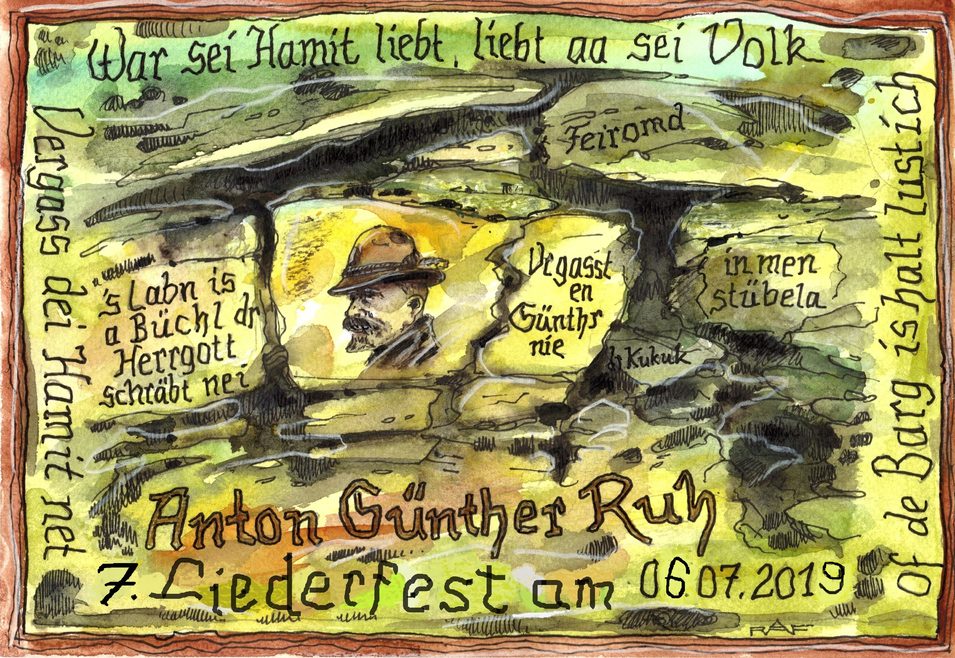 War sei Hamit liebt, liebt aa sei Volk
Vergass dei Hamit net
Feiromd
's Labn is
a Büchl dr
Herrgott
schräbt nei
Vrgasst
en
Günthr
nie
in men
stübela
dr Kukuk
of de Barg is halt lustich
Anton Günther Ruh
7. Liederfest am 06.07.2019
RAF